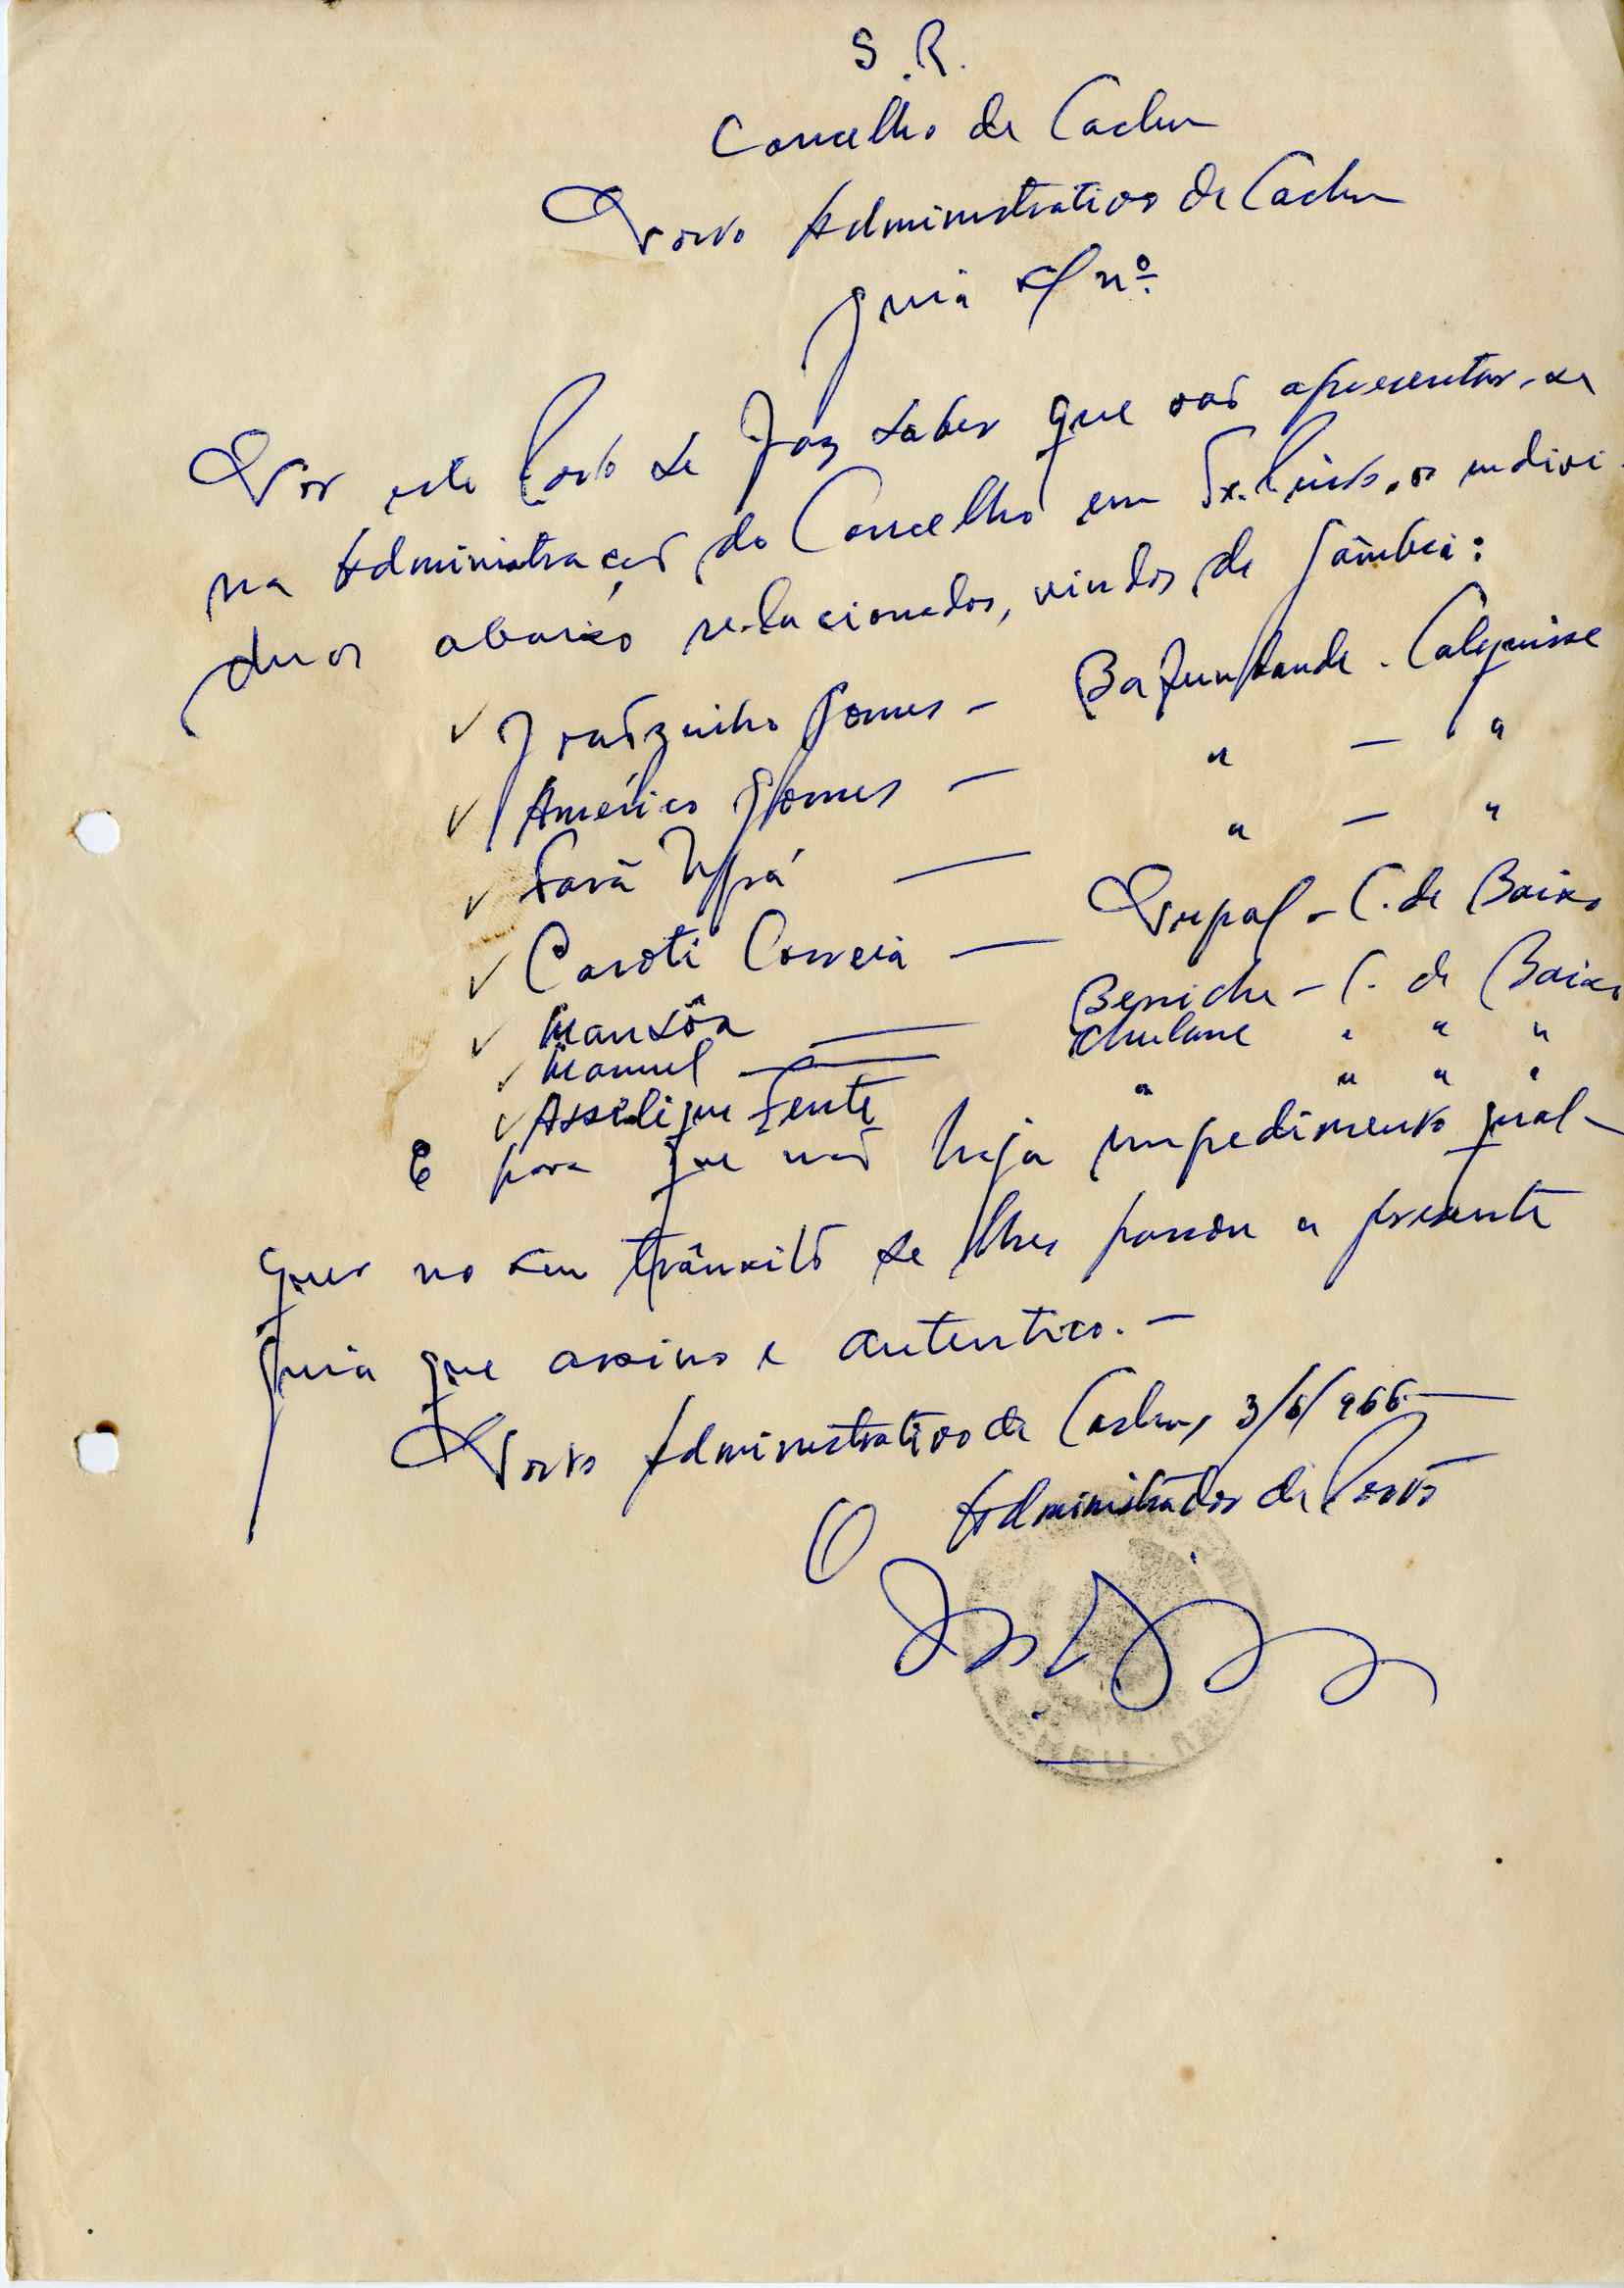 S. R.
Concelho de Cacheu
Posto Administrativo de Cacheu
Guia s/ nº
Por este Posto se faz saber que vão apresentar-se
na Administração do Concelho em Tx. Pinto, os indiví-
duos abaixo relacionados, vindos de Gâmbia:
✓ Joãozinho Gomes - Calequisse
✓ Américo Gomes — " — "
✓ — " — "
✓ Caroti Correia — - C. de Baixo
✓ Mansôa — Beniche - C. de Baixo
✓ Manuel — Chulame " " "
✓ Assélique Fente " " " "
E para que não haja impedimento qual-
quer no seu trânsito se lhes passou a presente
guia que assino e autentico. —
Posto Administrativo de Cacheu, 3/6/966 —
O Administrador de Posto